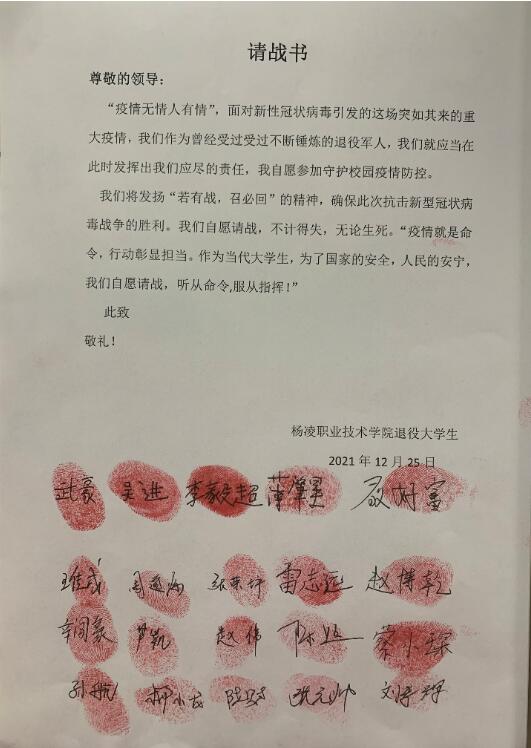 请战书
尊敬的领导：
“疫情无情人有情”，面对新性冠状病毒引发的这场突如其来的重
大疫情，我们作为曾经受过受过不断锤炼的退役军人，我们就应当在
此时发挥出我们应尽的责任，我自愿参加守护校园疫情防控。
我们将发扬“若有战，召必回”的精神，确保此次抗击新型冠状病
毒战争的胜利。我们自愿请战，不计得失，无论生死。“疫情就是命
令，行动彰显担当。作为当代大学生，为了国家的安全，人民的安宁，
我们自愿请战，听从命令,服从指挥！”
此致
敬礼！
杨凌职业技术学院退役大学生
2021 年 12 月 25 日
武豪 吴进 李毅超
雷志远 赵博乾
赵伟
孙航